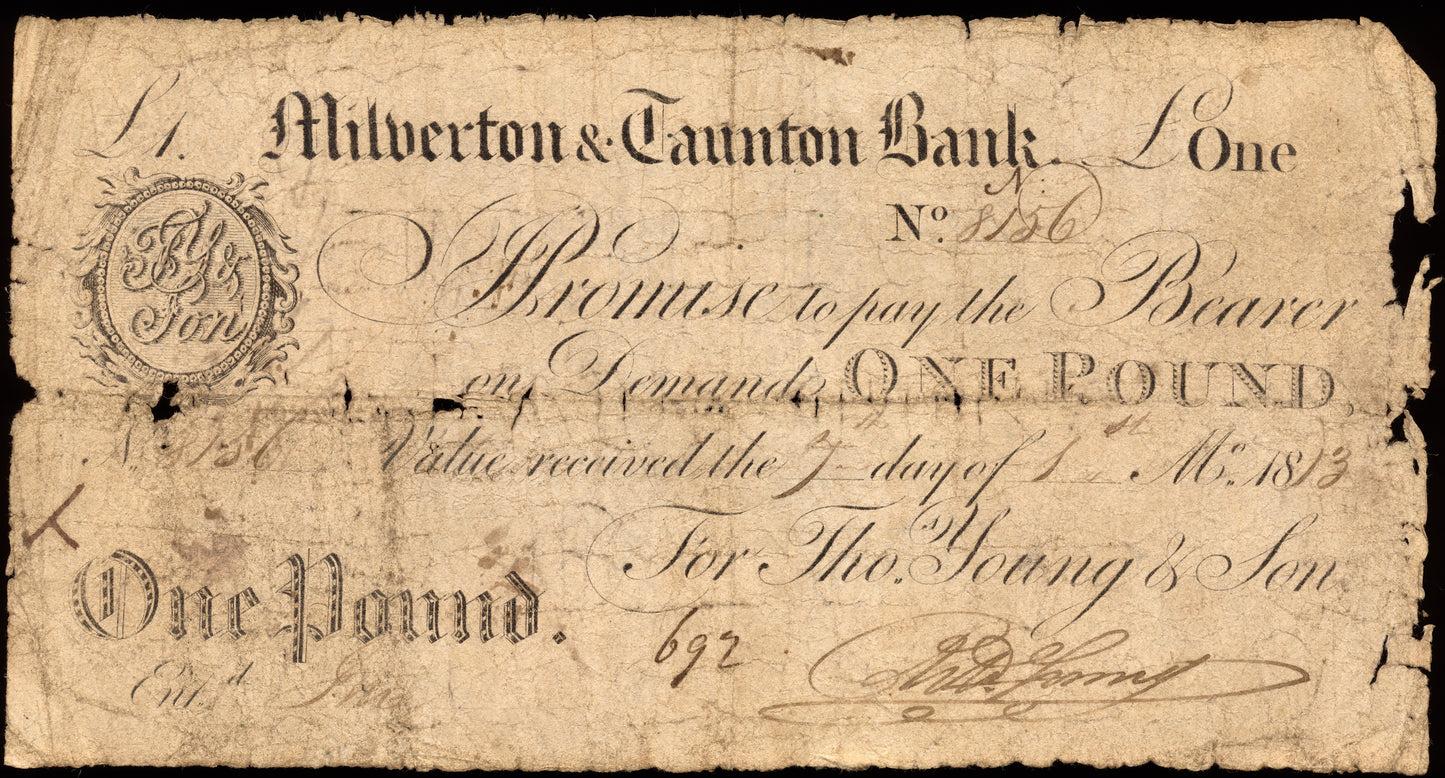 L 1. Milverton & Taunton Bank. £ One
No. 8156
TY & Son
I Promise to pay the Bearer
on Demand, ONE POUND,
No. 8156 Value received the 7th day of 1st Mo. 1813
For Thos. Young & Son
One Pound.
692
Entd.